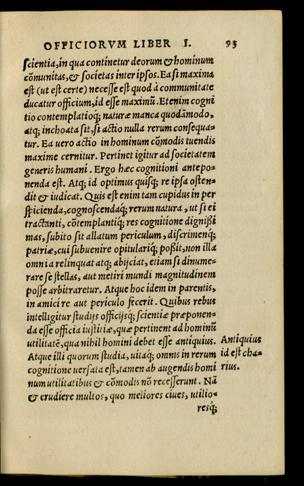 OFFICIORVM LIBER I. 93
scientia, in qua continetur deorum & hominum
cõmunitas, & societas inter ipsos. Ea si maxima
est (ut est certe) necesse est quod à communitate
ducatur officium, id esse maximũ. Etenim cogni
tio contemplatioq; naturæ manca quodãmodo,
atq; inchoata sit, si actio nulla rerum consequa-
tur. Ea uero actio in hominum cõmodis tuendis
maxime cernitur. Pertinet igitur ad societatem
generis humani. Ergo hæc cognitioni antepo-
nenda est. Atq; id optimus quisq; re ipsa osten-
dit & iudicat. Quis est enim tam cupidus in per
spicienda, cognoscendaq; rerum natura, ut si ei
tractanti, cõtemplantiq; res cognitione dignissi
mas, subito sit allatum periculum, discrimenq;
patriæ, cui subuenire opitulariq; possit, non illa
omnia relinquat atq; abijciat, etiam si dinume-
rare se stellas, aut metiri mundi magnitudinem
posse arbitraretur. Atque hoc idem in parentis,
in amici re aut periculo fecerit. Quibus rebus
intelligitur studijs officijsq; scientiæ præponen-
da esse officia iustitiæ, quæ pertinent ad hominũ
utilitatẽ, qua nihil homini debet esse antiquius.
Antiquius
id est cha-
rius.
Atque illi quorum studia, uitaq; omnis in rerum
cognitione uersata est, tamen ab augendis homi
num utilitatibus & cõmodis nõ recesserunt. Nã
& erudiere multos, quo meliores ciues, utilio-
resq;